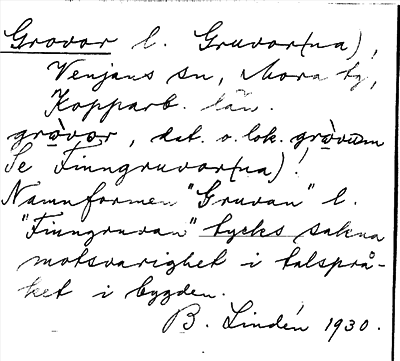 Grovor l. Gruvor(na),
Venjans sn, Mora tg,
Kopparb. län.
gròvo̠r, dat. o. lok. gròvum
Se Finngruvor(na)!
Namnformen "Gruvan" l.
"Finngruvan" tycks sakna
motsvarighet i talsprå-
ket i bygden.
B. Lindén 1930.